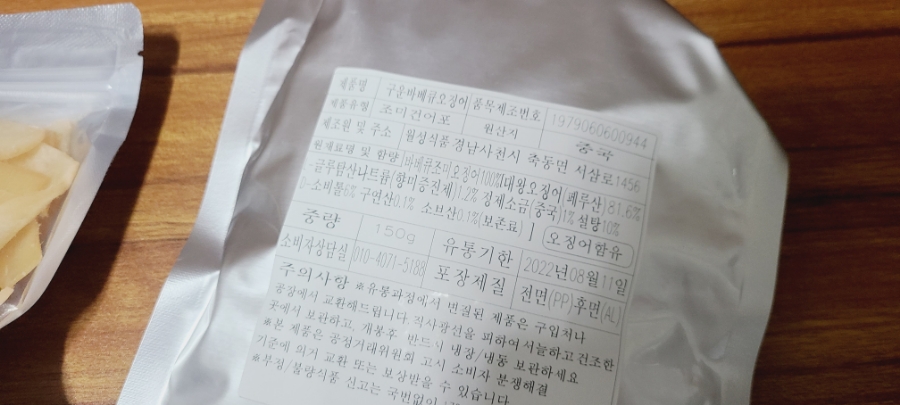 제품명 구운바베큐오징어 품목제조번호 1979060600944
제품유형 조미건어포 원산지 중국
제조원 및 주소 월성식품 경남사천시 축동면 서삼로1456
원재료명 및 함량 바베큐조미오징어100%[대왕오징어(페루산)81.6%
L-글루탐산나트륨(향미증진제)1.2% 정제소금(중국)1% 설탕10%
D-소비톨6% 구연산0.1% 소브산0.1%(보존료)] 오징어함유
중량 150g 유통기한 2022년08월11일
소비자상담실 010-4071-5188 포장재질 전면(PP)후면(AL)
주의사항 ※유통과정에서 변질된 제품은 구입처나
공장에서 교환해드립니다.직사광선을 피하여서늘하고건조한
곳에서 보관하고, 개봉후 반드시 냉장/냉동 보관하세요
※본 제품은 공정거래위원회 고시 소비자 분쟁해결
기준에 의거 교환 또는 보상받을 수 있습니다
※부정/불량식품 신고는 국번없이